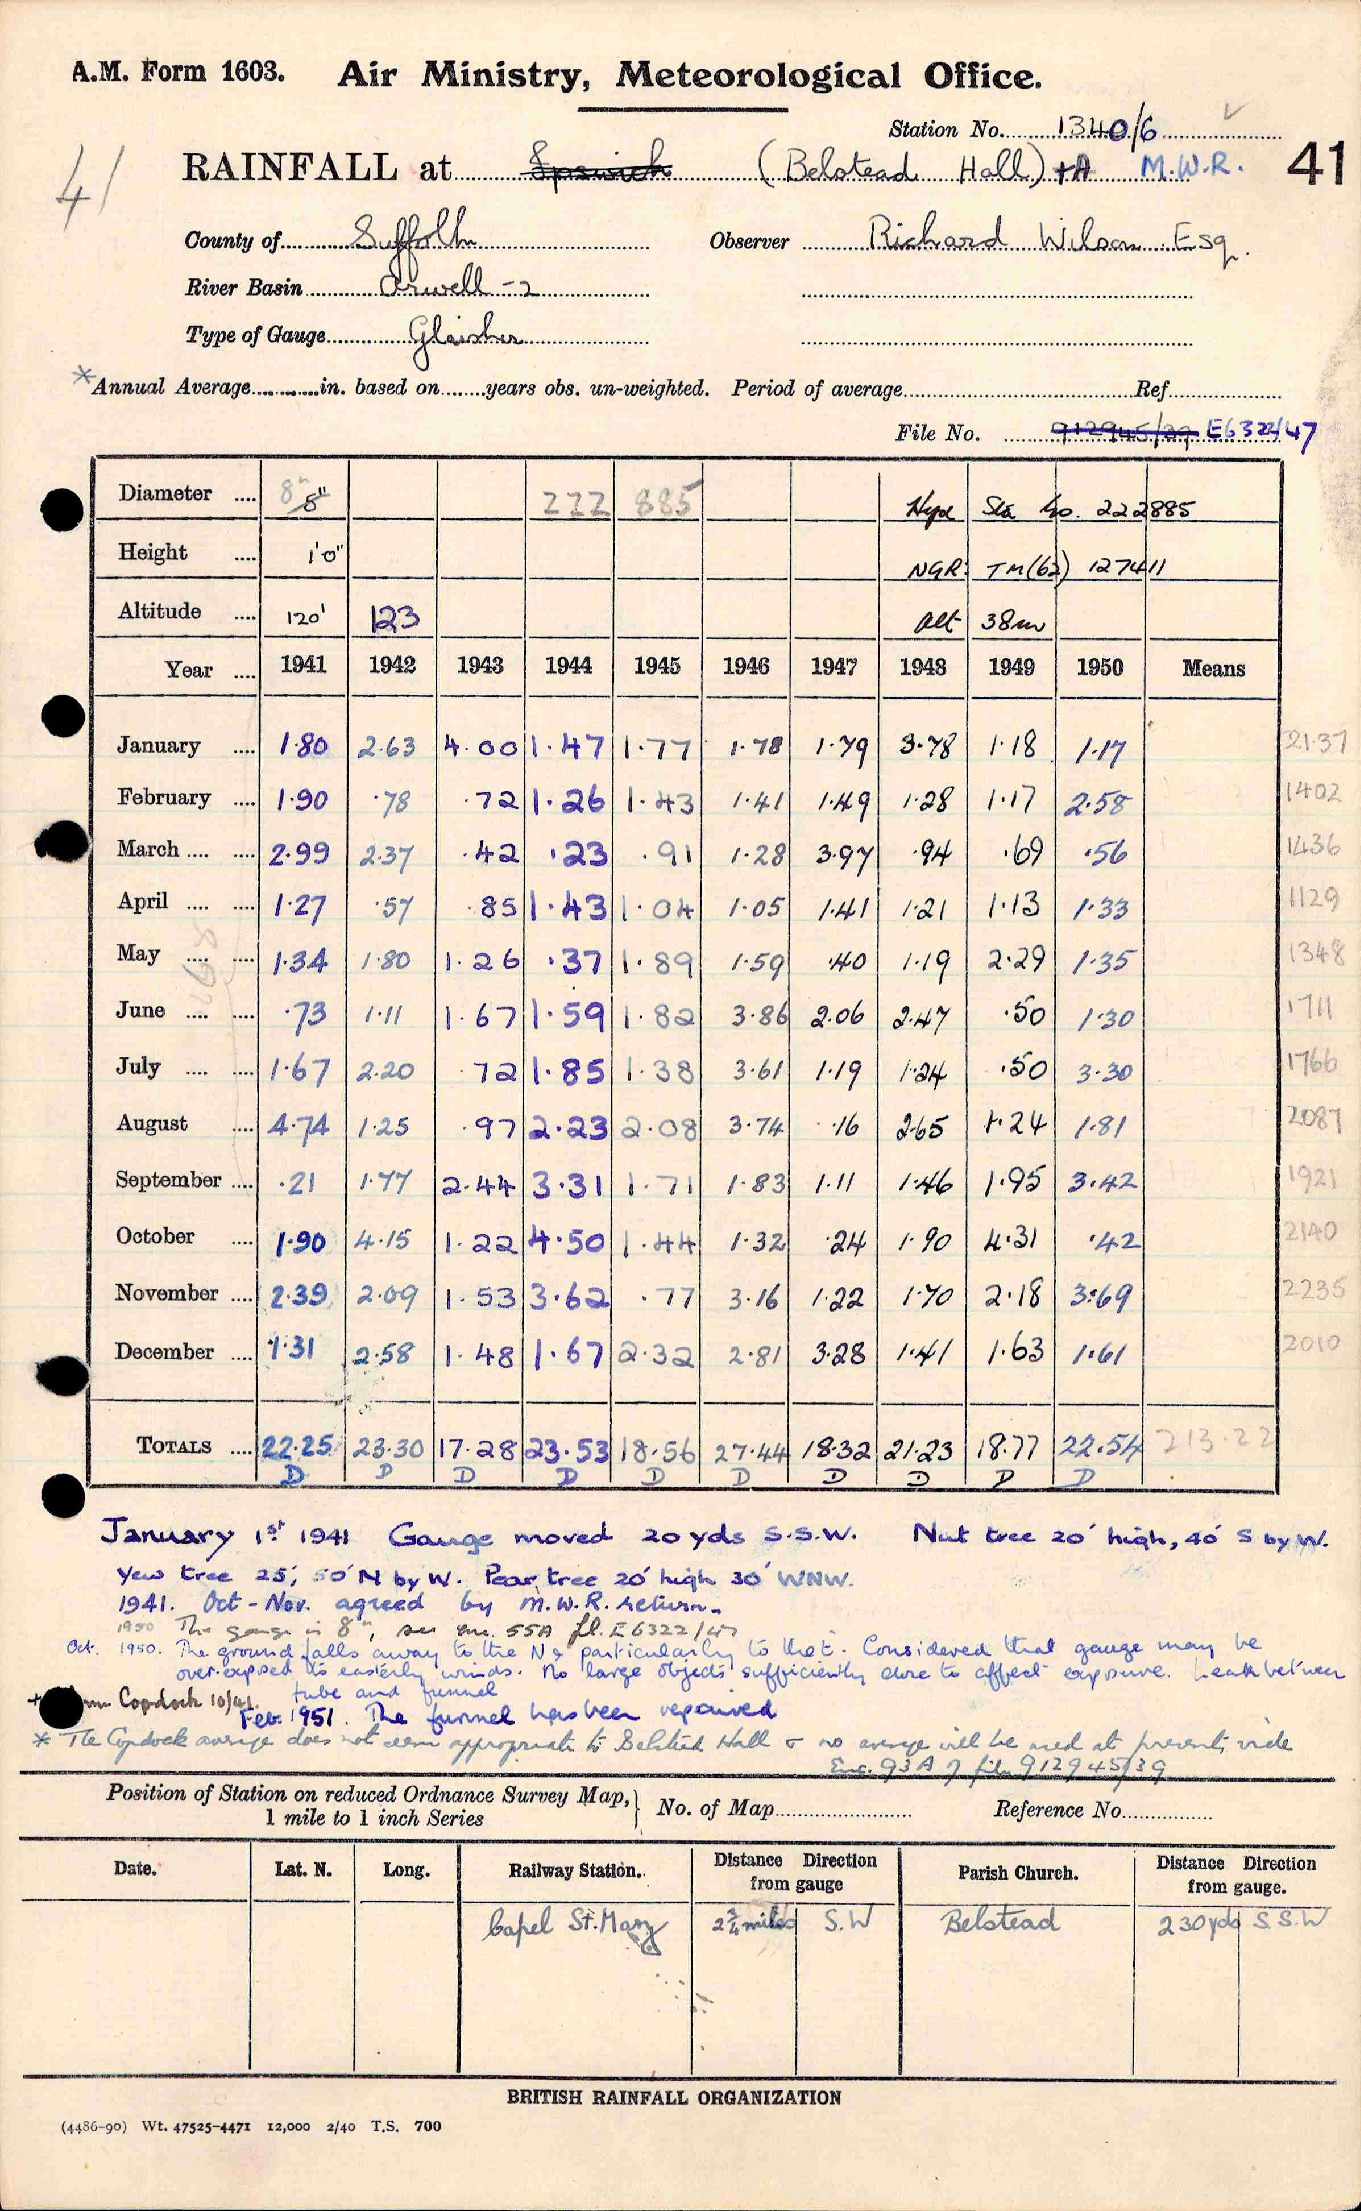 A.M. Form 1603. Air Ministry, Meteorological Office.
Station No. 1340/6
41 RAINFALL at Ipswich (Belstead Hall) +A M.W.R. 41
County of Suffolk Observer Richard Wilson Esq.
River Basin Orwell -2
Type of Gauge Glaisher
*Annual Average in. based on years obs. un-weighted. Period of average Ref
File No. 912945/39 E6322/47
Diameter 8" 5" 222 885 Hyd Sta No. 222885
Height 1'0" NGR: TM(62) 127411
Altitude 120' 123 Alt 38m
Year 1941 1942 1943 1944 1945 1946 1947 1948 1949 1950 Means
January 1.80 2.63 4.00 1.47 1.77 1.78 1.79 3.78 1.18 1.17 21.37
February 1.90 .78 .72 1.26 1.43 1.41 1.49 1.28 1.17 2.58 1402
March 2.99 2.37 .42 .23 .91 1.28 3.97 .94 .69 .56 1436
April 1.27 .57 .85 1.43 1.04 1.05 1.41 1.21 1.13 1.33 1129
May 1.34 1.80 1.26 .37 1.89 1.59 .40 1.19 2.29 1.35 1348
June .73 1.11 1.67 1.59 1.82 3.86 2.06 2.47 .50 1.30 1711
July 1.67 2.20 .72 1.85 1.38 3.61 1.19 1.24 .50 3.30 1766
August 4.74 1.25 .97 2.23 2.08 3.74 .16 2.65 1.24 1.81 2087
September .21 1.77 2.44 3.31 1.71 1.83 1.11 1.46 1.95 3.42 1921
October 1.90 4.15 1.22 4.50 1.44 1.32 .24 1.90 4.31 .42 2140
November 2.39 2.09 1.53 3.62 .77 3.16 1.22 1.70 2.18 3.69 2235
December 1.31 2.58 1.48 1.67 2.32 2.81 3.28 1.41 1.63 1.61 2010
TOTALS 22.25 23.30 17.28 23.53 18.56 27.44 18.32 21.23 18.77 22.54 213.22
D D D D D D D D D D
January 1st 1941 Gauge moved 20 yds S.S.W. Nut tree 20' high, 40' S by W.
Yew tree 25', 50' N by W. Pear tree 20' high 30' WNW.
1941. Oct - Nov. agreed by M.W.R. return.
1950 The gauge is 8", see enc. 55A fl. E6322/47
Oct. 1950. The ground falls away to the N & particularly to the E. Considered that gauge may be
over-exposed to easterly winds. No large objects sufficiently close to affect exposure. Leak between
tube and funnel
+ Copdock 10/41.
Feb. 1951. The funnel has been repaired
* The Copdock average does not seem appropriate to Belstead Hall & no average will be used at present, vide
Enc. 93A of file 912945/39
Position of Station on reduced Ordnance Survey Map,
1 mile to 1 inch Series No. of Map Reference No.
Date. Lat. N. Long. Railway Station. Distance from gauge Direction Parish Church. Distance from gauge. Direction
Capel St. Mary 2 3/4 miles S.W Belstead 230 yds S.S.W
BRITISH RAINFALL ORGANIZATION
(4486-90) Wt. 47525-4471 12,000 2/40 T.S. 700